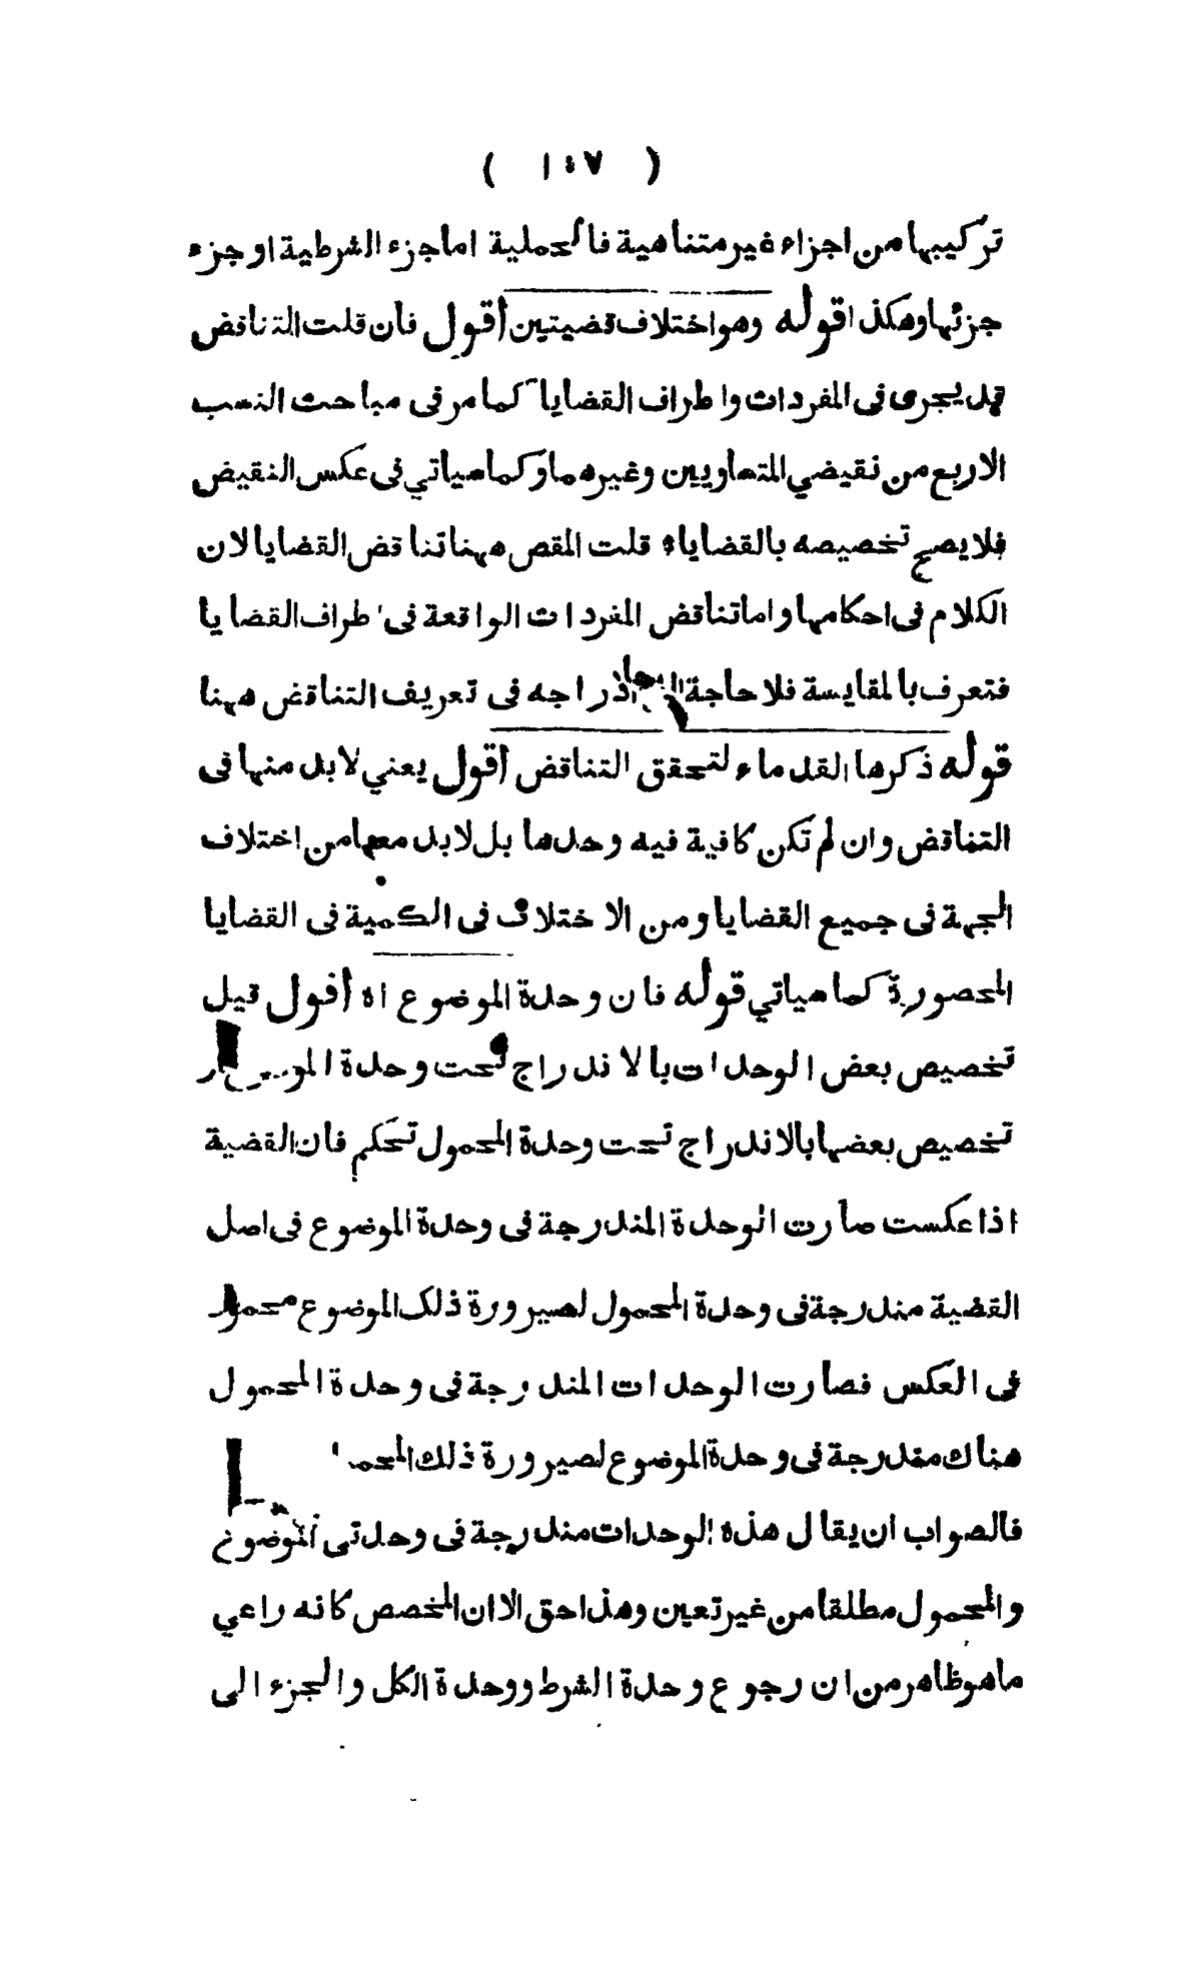 ( ١٥٧ )
تركيبها من اجزاء غير متناهية فالحملية اما جزء الشرطية او جزء
جزئها وهكذا قوله وهو اختلاف قضيتين أقول فان قلت التناقض
قد يجرى فى المفردات واطراف القضايا كما مر فى مباحث النسب
الاربع من نقيضي المتساويين وغيرهما وكما سياتي فى عكس النقيض
فلا يصح تخصيصه بالقضايا، قلت المقص ههنا تناقض القضايا لان
الكلام فى احكامها واما تناقض المفردات الواقعة فى اطراف القضايا
فتعرف بالمقايسة فلا حاجة الى ادراجه فى تعريف التناقض ههنا
قوله ذكرها القدماء لتحقق التناقض أقول يعني لابد منها فى
التناقض وان لم تكن كافية فيه وحدها بل لابد معها من اختلاف
الجهة فى جميع القضايا ومن الاختلاف فى الكمية فى القضايا
المحصورة كما سياتي قوله فان وحدة الموضوع اه أقول قيل
تخصيص بعض الوحدات بالاندراج تحت وحدة
تخصيص بعضها بالاندراج تحت وحدة المحمول تحكم فان القضية
اذا عكست صارت الوحدة المندرجة فى وحدة الموضوع فى اصل
القضية مندرجة فى وحدة المحمول لصيرورة ذلك الموضوع محمولا
فى العكس فصارت الوحدات المندرجة فى وحدة المحمول
هناك مندرجة فى وحدة الموضوع لصيرورة ذلك
فالصواب ان يقال هذه الوحدات مندرجة فى وحدتى الموضوع
والمحمول مطلقا من غير تعين وهذا حق الا ان المخصص كانه راعي
ما هو ظاهر من ان رجوع وحدة الشرط ووحدة الكل والجزء الى